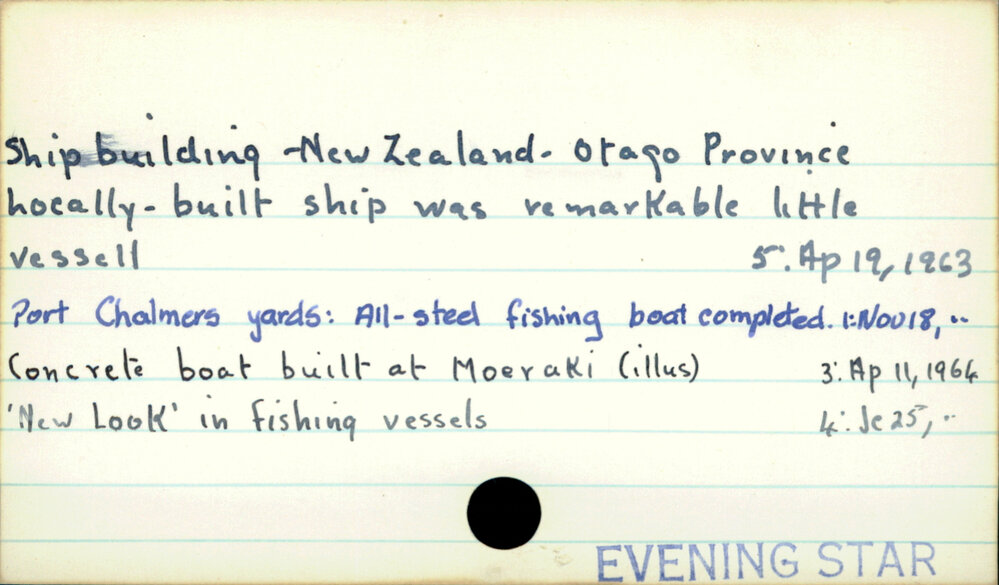 Shipbuilding - New Zealand - Otago Province
Locally-built ship was remarkable little
vessell 5:Ap 19, 1963
Port Chalmers yards: All-steel fishing boat completed. 1:Nov18, "
Concrete boat built at Moeraki (illus) 3:Ap 11, 1964
'New Look' in fishing vessels 4:Je 25, "
EVENING STAR